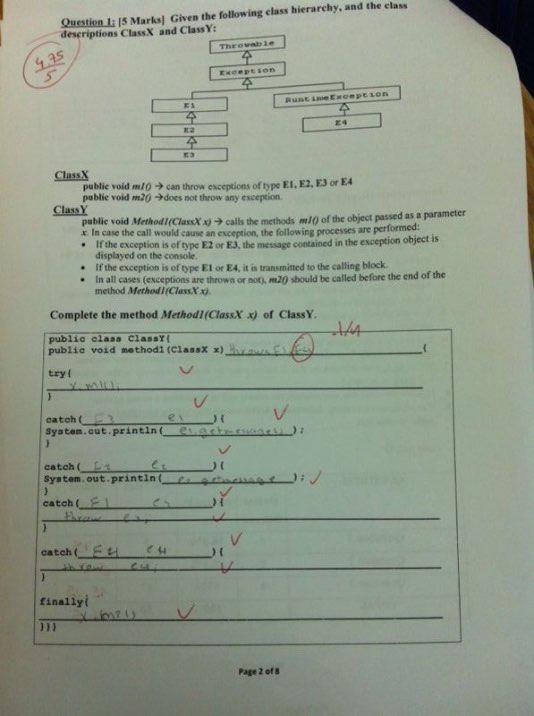 Question 1: [5 Marks] Given the following class hierarchy, and the class
descriptions ClassX and ClassY:
4.75
5
Throwable
Exception
E1
RuntimeException
E2
E4
E3
ClassX
public void m1() → can throw exceptions of type E1, E2, E3 or E4
public void m2() →does not throw any exception.
ClassY
public void Method1(ClassX x) → calls the methods m1() of the object passed as a parameter
x. In case the call would cause an exception, the following processes are performed:
• If the exception is of type E2 or E3, the message contained in the exception object is
displayed on the console.
• If the exception is of type E1 or E4, it is transmitted to the calling block.
• In all cases (exceptions are thrown or not), m2() should be called before the end of the
method Method1(ClassX x).
Complete the method Method1(ClassX x) of ClassY.
-1/4
public class ClassY{
public void method1(ClassX x) throws E1, E4 {
try{
x.m1();
}
catch( E3 e1 ){
System.out.println( e1.getmessage() );
}
catch( E2 e2 ){
System.out.println( e2.getmessage );
}
catch( E1 e3 ){
throw e3;
}
catch( E4 e4 ){
throw e4;
}
finally{
x.m2();
}}}
Page 2 of 8